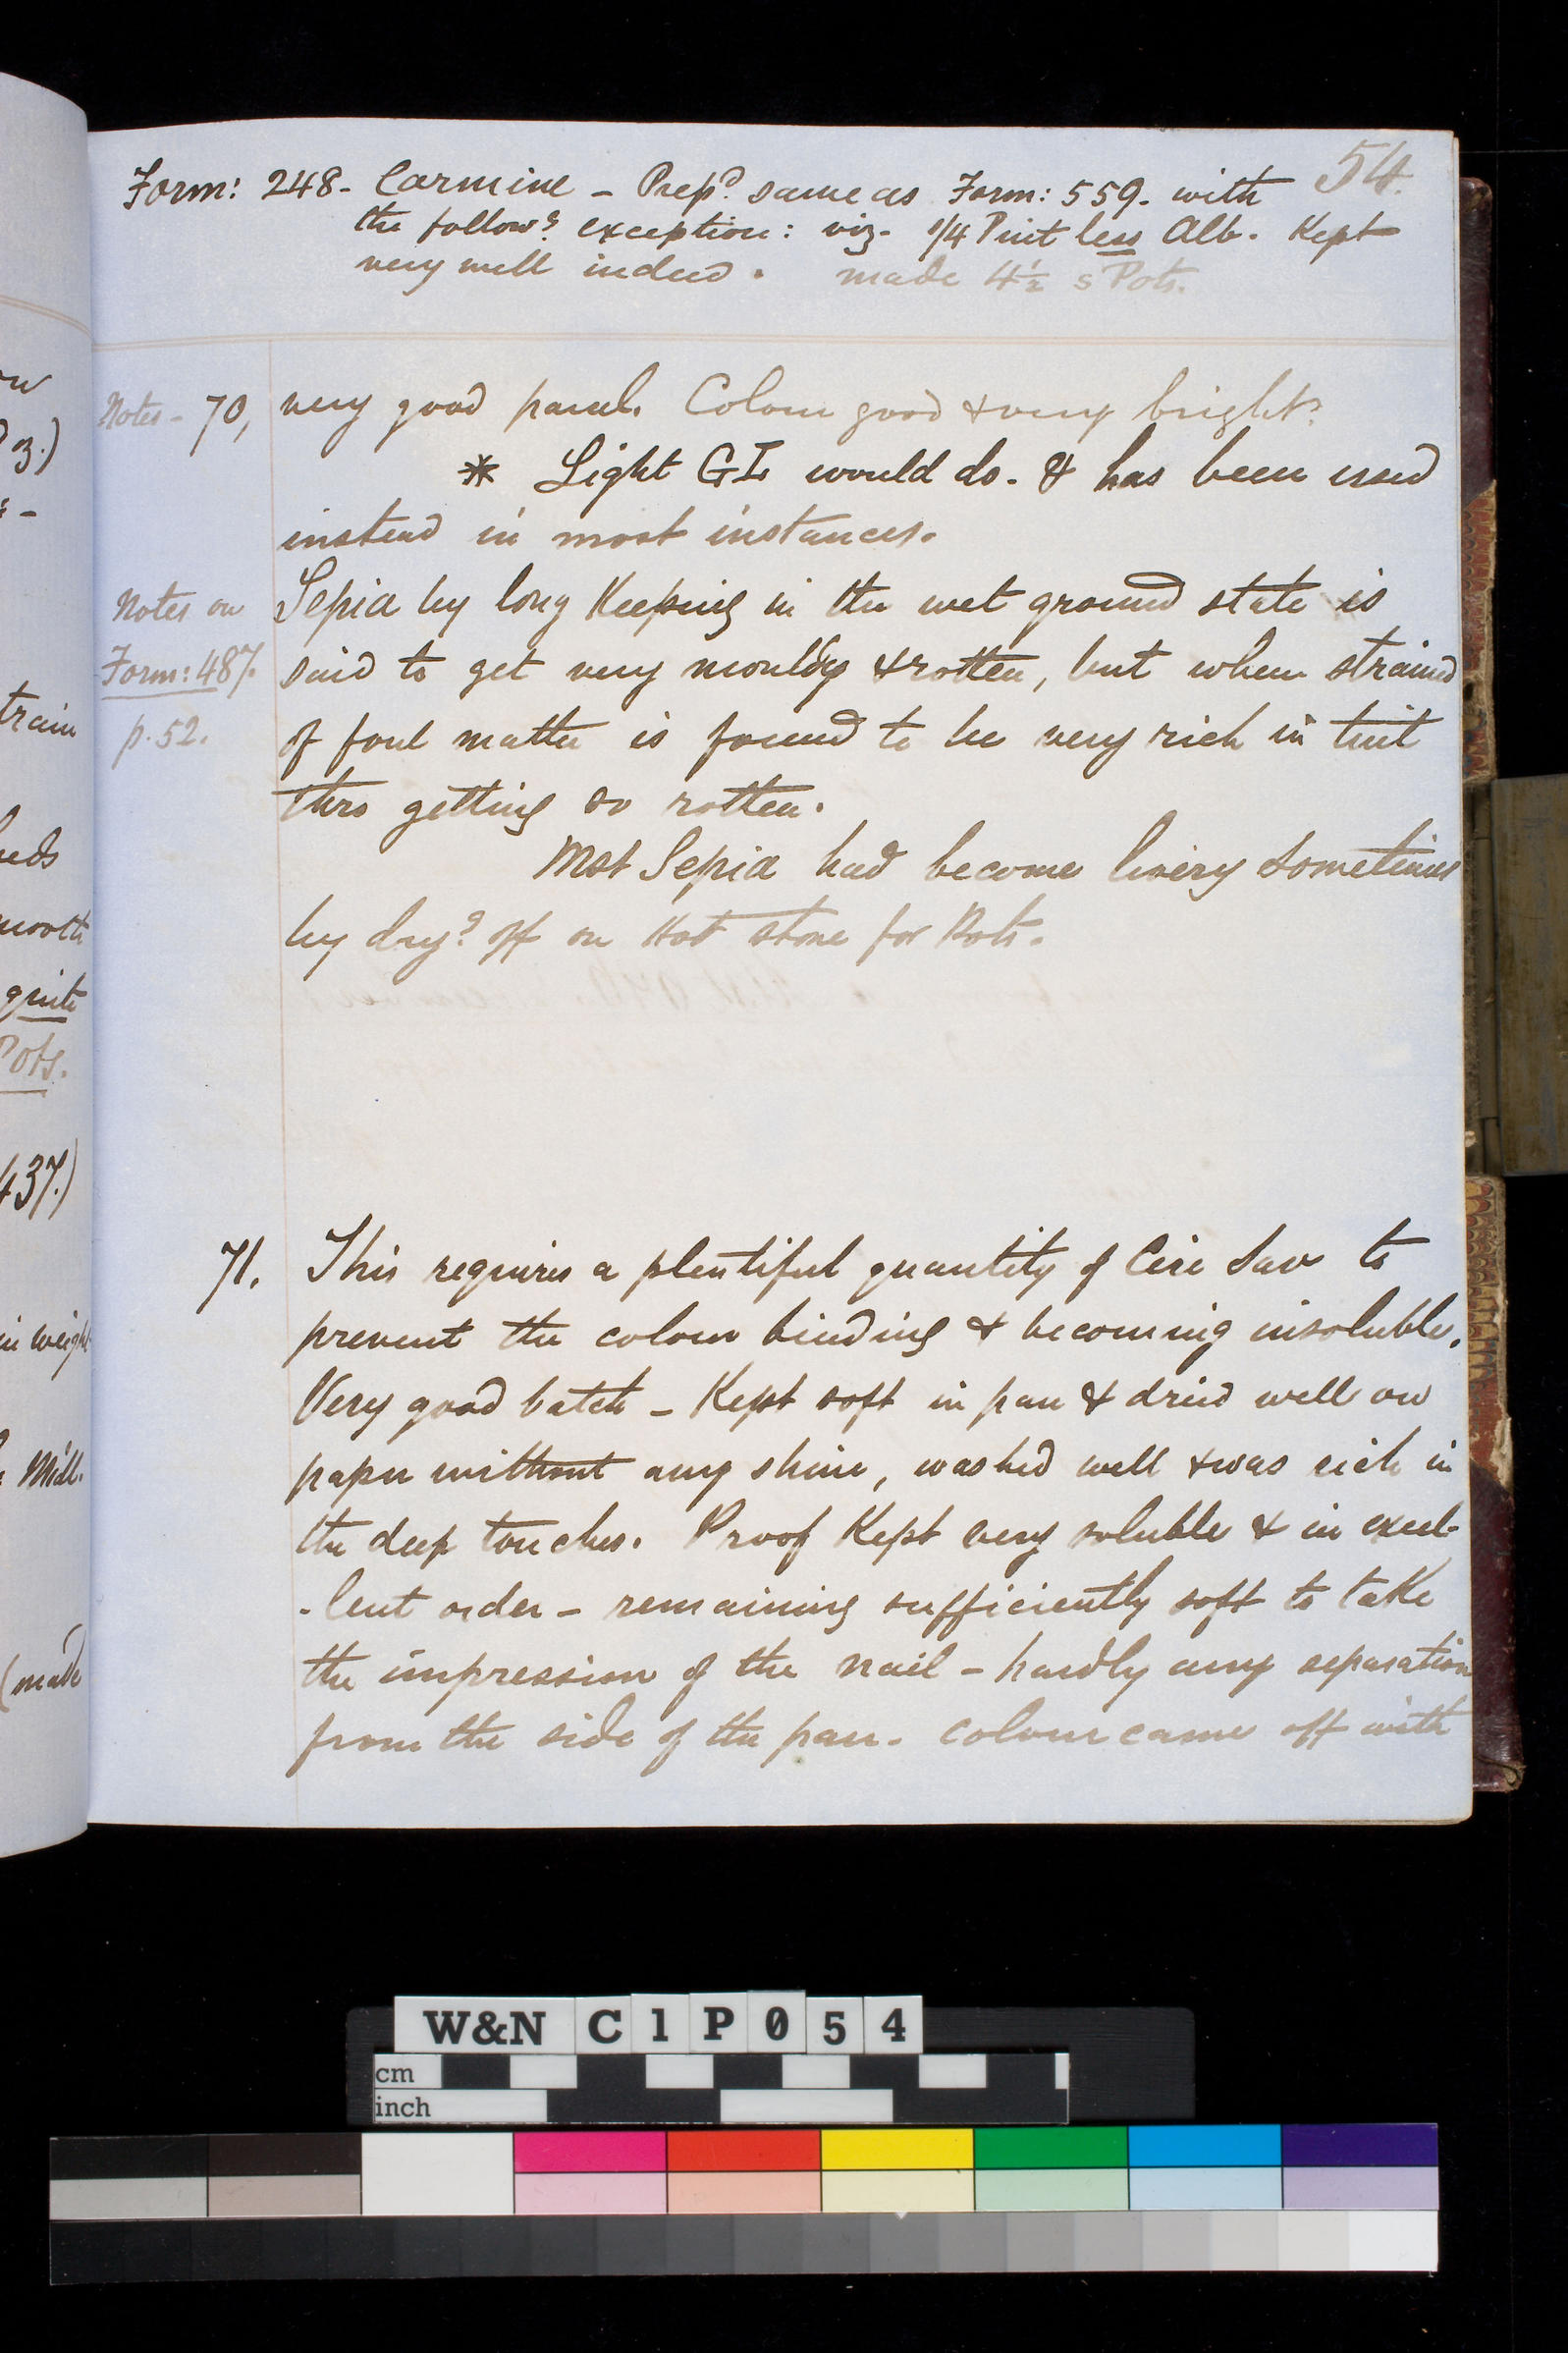 54.
Form: 248- Carmine - Prepd. same as Form: 559. with
the followg. exception: viz- 1/4 Pint less Alb. Kept
very well indeed. made 4½ s Pots.
Notes - 70, very good parcel. Colour good & very bright.
* Light GL would do - & has been used
instead in most instances.
Notes on Sepia by long Keeping in the wet ground state is
Form: 487. said to get very mouldy & rotten, but when strained
p. 52. of foul matter is found to be very rich in tint
thro getting so rotten.
Mst Sepia had become livery sometimes
by dryg. off on Hot stone for Pots.
71. This requires a plentiful quantity of Cire Sav to
prevent the colour binding & becoming insoluble.
Very good batch - Kept soft in pan & dried well on
paper without any shine, washed well & was rich in
the deep touches. Proof Kept very soluble & in excel-
-lent order - remaining sufficiently soft to take
the impression of the nail - hardly any separation
from the side of the pan. Colour came off with
3.)
train
quite
Pots.
437.)
in weight
Mill.
(made
W&N C1P054
cm
inch